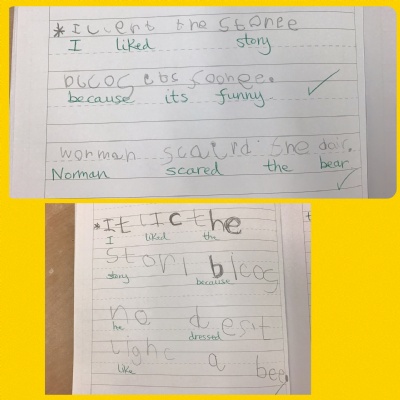 *I liert the storee
I liked story
bcos ebs soonee.
because its funny
worman scaird the dair.
Norman scared the bear
*It lic the
I liked the
stori bicos
story because
no. desit
he dressed
lighc a bee.
like